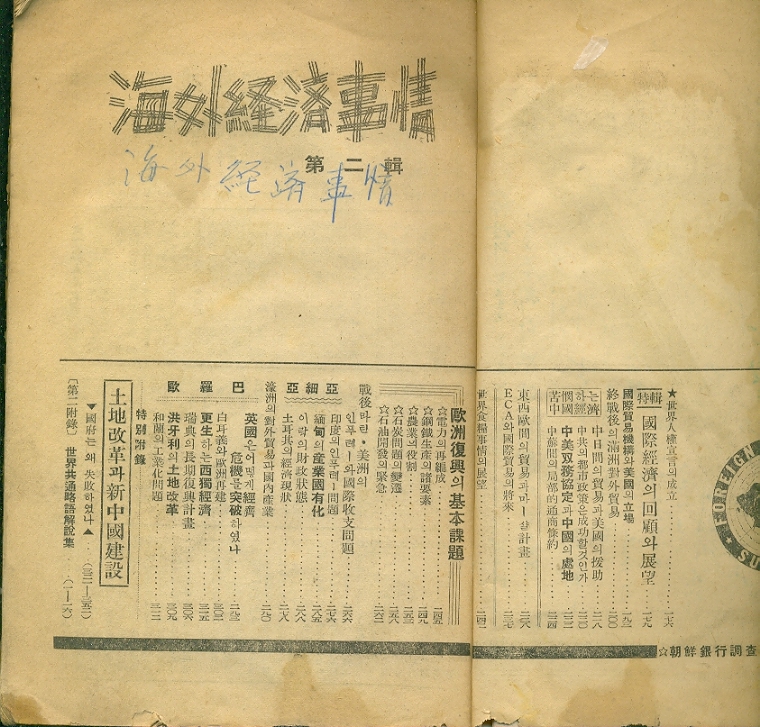 海外経済事情
第二輯
海外経済事情
★世界人權宣言의成立
特輯 國際經濟의回顧와展望
國際貿易機構와美國의立場
終戰後의滿洲對外貿易
苦憫하는中國經濟
中日間의貿易과美國의援助
中共의都市政策은成功할것인가
中美双務協定과中國의處地
中蘇間의局部的通商條約
東西歐間의貿易과마ー샬計畫
ECA와國際貿易의將來
世界食糧事情의展望
歐洲復興의基本課題
☆電力의再編成
☆鋼鐵生產의諸要素
☆農業의役割
☆石炭問題의變遷
☆石油開發의緊急
戰後라틴・美洲의
인푸레ー와國際收支問題
亞細亞
印度의인푸레ー問題
緬甸의産業國有化
이락의財政狀態
土耳其의經濟現狀
濠洲의對外貿易과國內産業
歐羅巴
英國은어떻게經濟
危機를突破하였나
白耳義와歐洲再建
更生하는西獨經濟
瑞典의長期復興計畫
洪牙利의土地改革
和蘭의工業化問題
特別附錄
土地改革과新中國建設
▼國府는왜失敗하였나▲
〔第二附錄〕世界共通略語解說集
(一ー一六)
☆朝鮮銀行調査
FOREIGN
SU